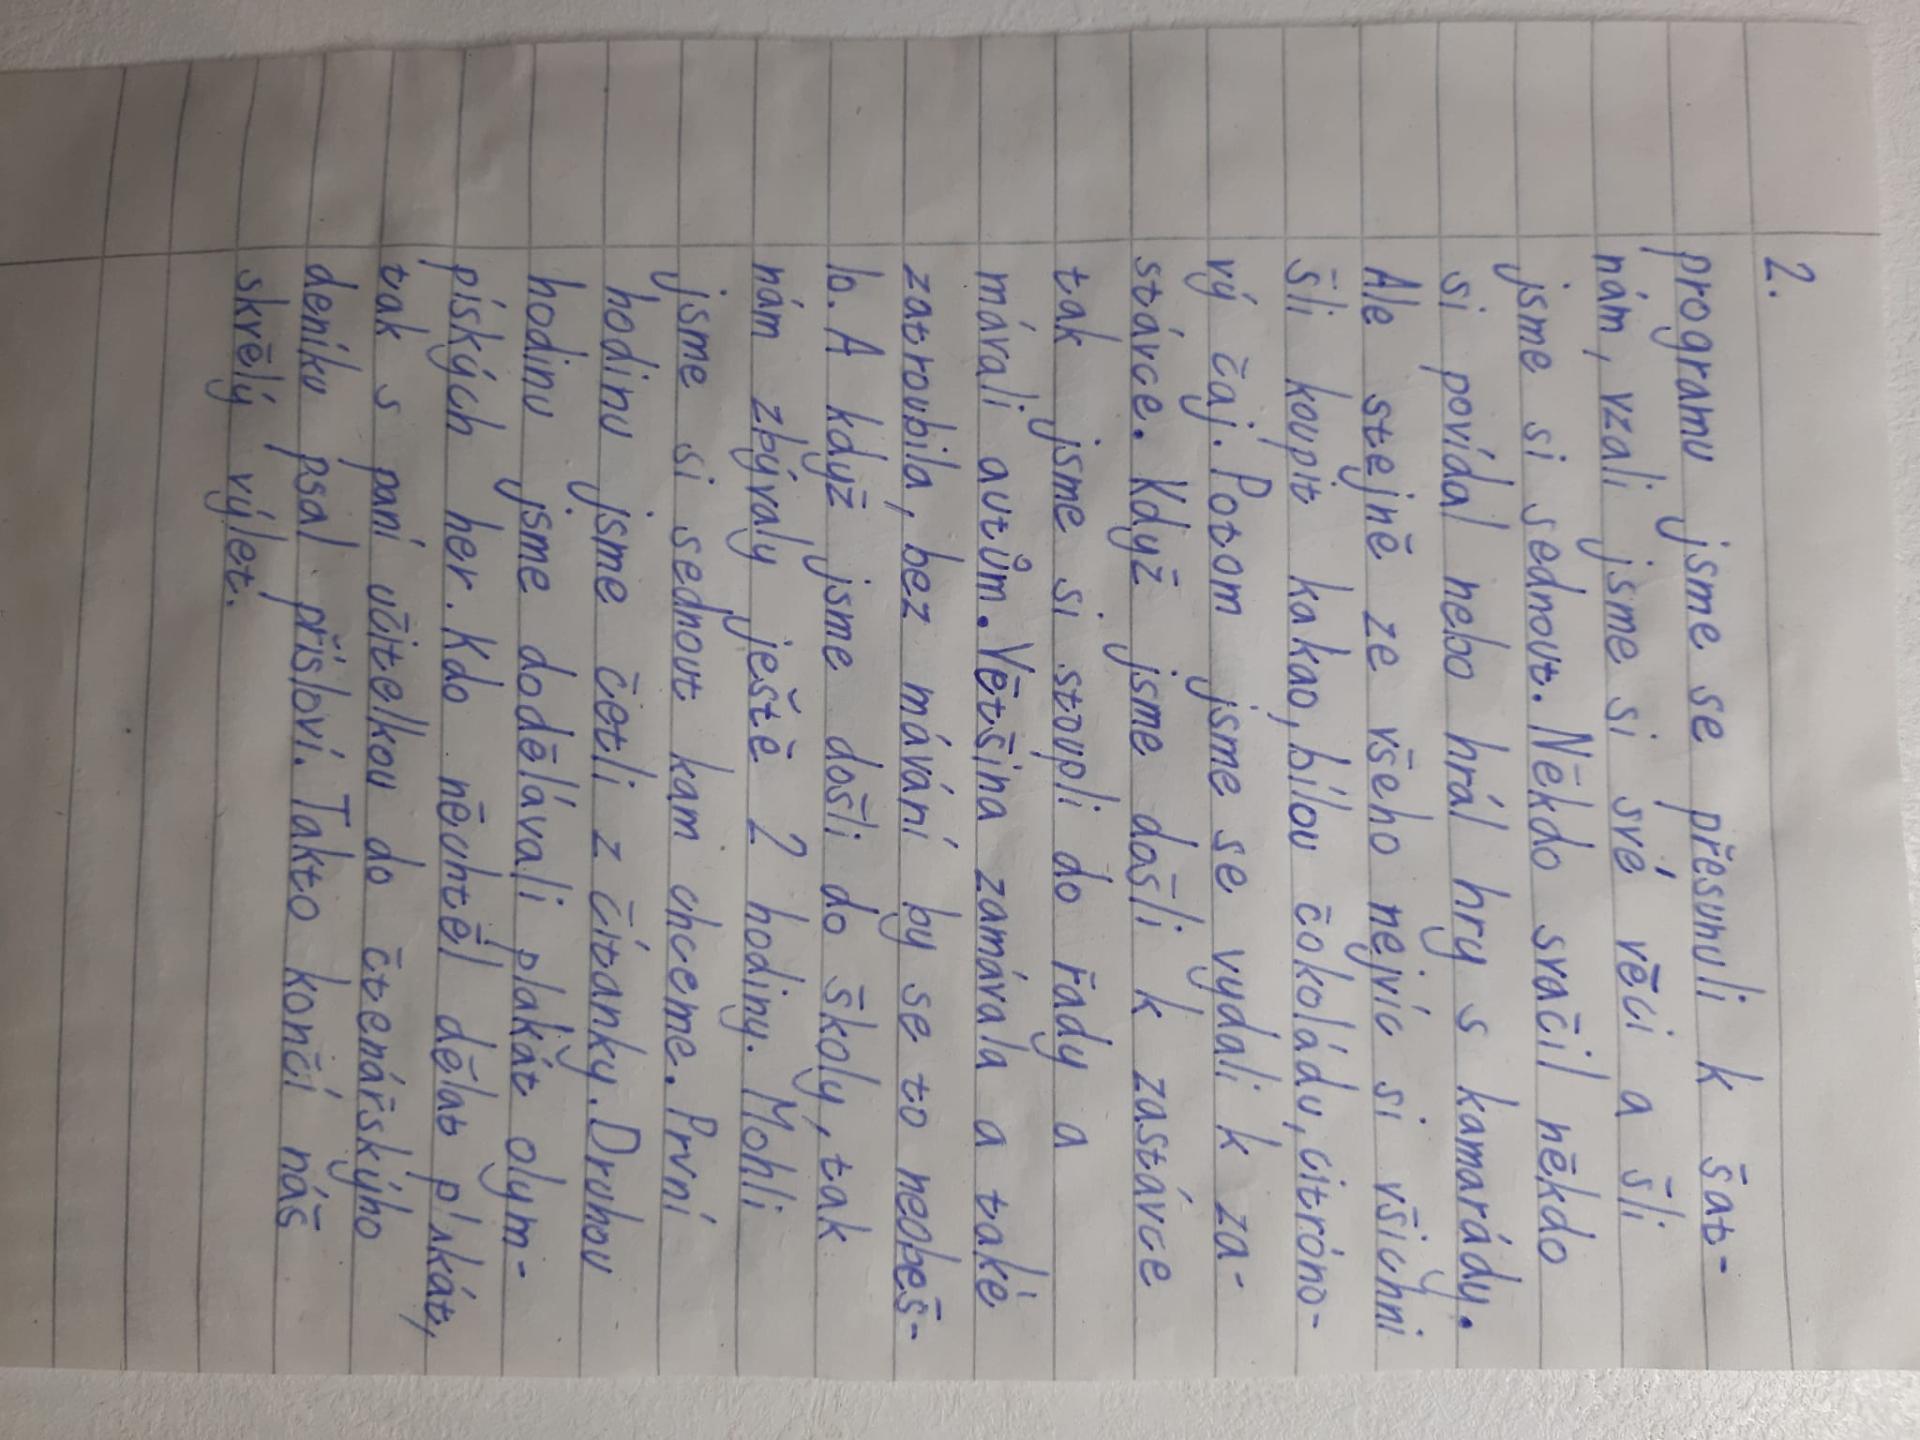 2.
programu jsme se přesunuli k šat-
nám, vzali jsme si své věci a šli
jsme si sednout. Někdo svačil někdo
si povídal nebo hrál hry s kamarády.
Ale stejně ze všeho nejvíc si všichni
šli koupit kakao, bílou čokoládu, citróno-
vý čaj. Potom jsme se vydali k za-
stávce. Když jsme došli k zastávce
tak jsme si stoupli do řady a
mávali autům. Většina zamávala a také
zatroubila, bez mávání by se to neobeš-
lo. A když jsme došli do školy, tak
nám zbývaly ještě 2 hodiny. Mohli
jsme si sednout kam chceme. První
hodinu jsme četli z čítanky. Druhou
hodinu jsme dodělávali plakát olym-
píských her. Kdo něuhtěl dělat plakát,
tak s paní učitelkou do čtenářskýho
deníku psal přísloví. Takto končí náš
skvělý výlet.